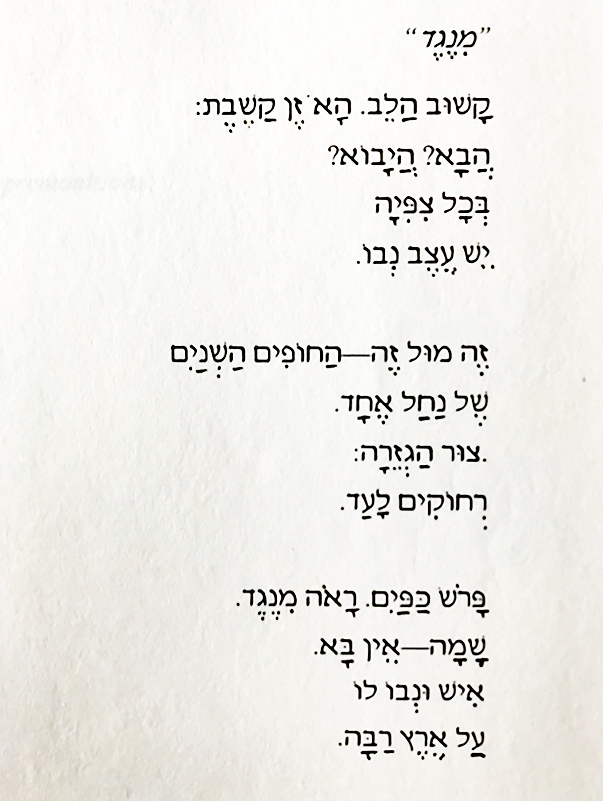 ”מִנֶגֶד“
קָשׁוּב הַלֵב. הָאֹזֶן קַשֶׁבֶת:
הֲבָא? הֲיָבוֹא?
בְּכָל צִפִּיָה
יֵשׁ עֶצֶב נְבוֹ.
זֶה מוּל זֶה—הַחוֹפִים הַשְׁנַיִם
שֶׁל נַחַל אֶחָד.
.צוּר הַגְזֵרָה:
רְחוֹקִים לָעַד.
פָּרֹשׁ כַּפַּיִם. רָאֹה מִנֶגֶד.
שָׁמָה—אֵין בָּא.
אִישׁ וּנְבוֹ לוֹ
עַל אֶרֶץ רַבָּה.